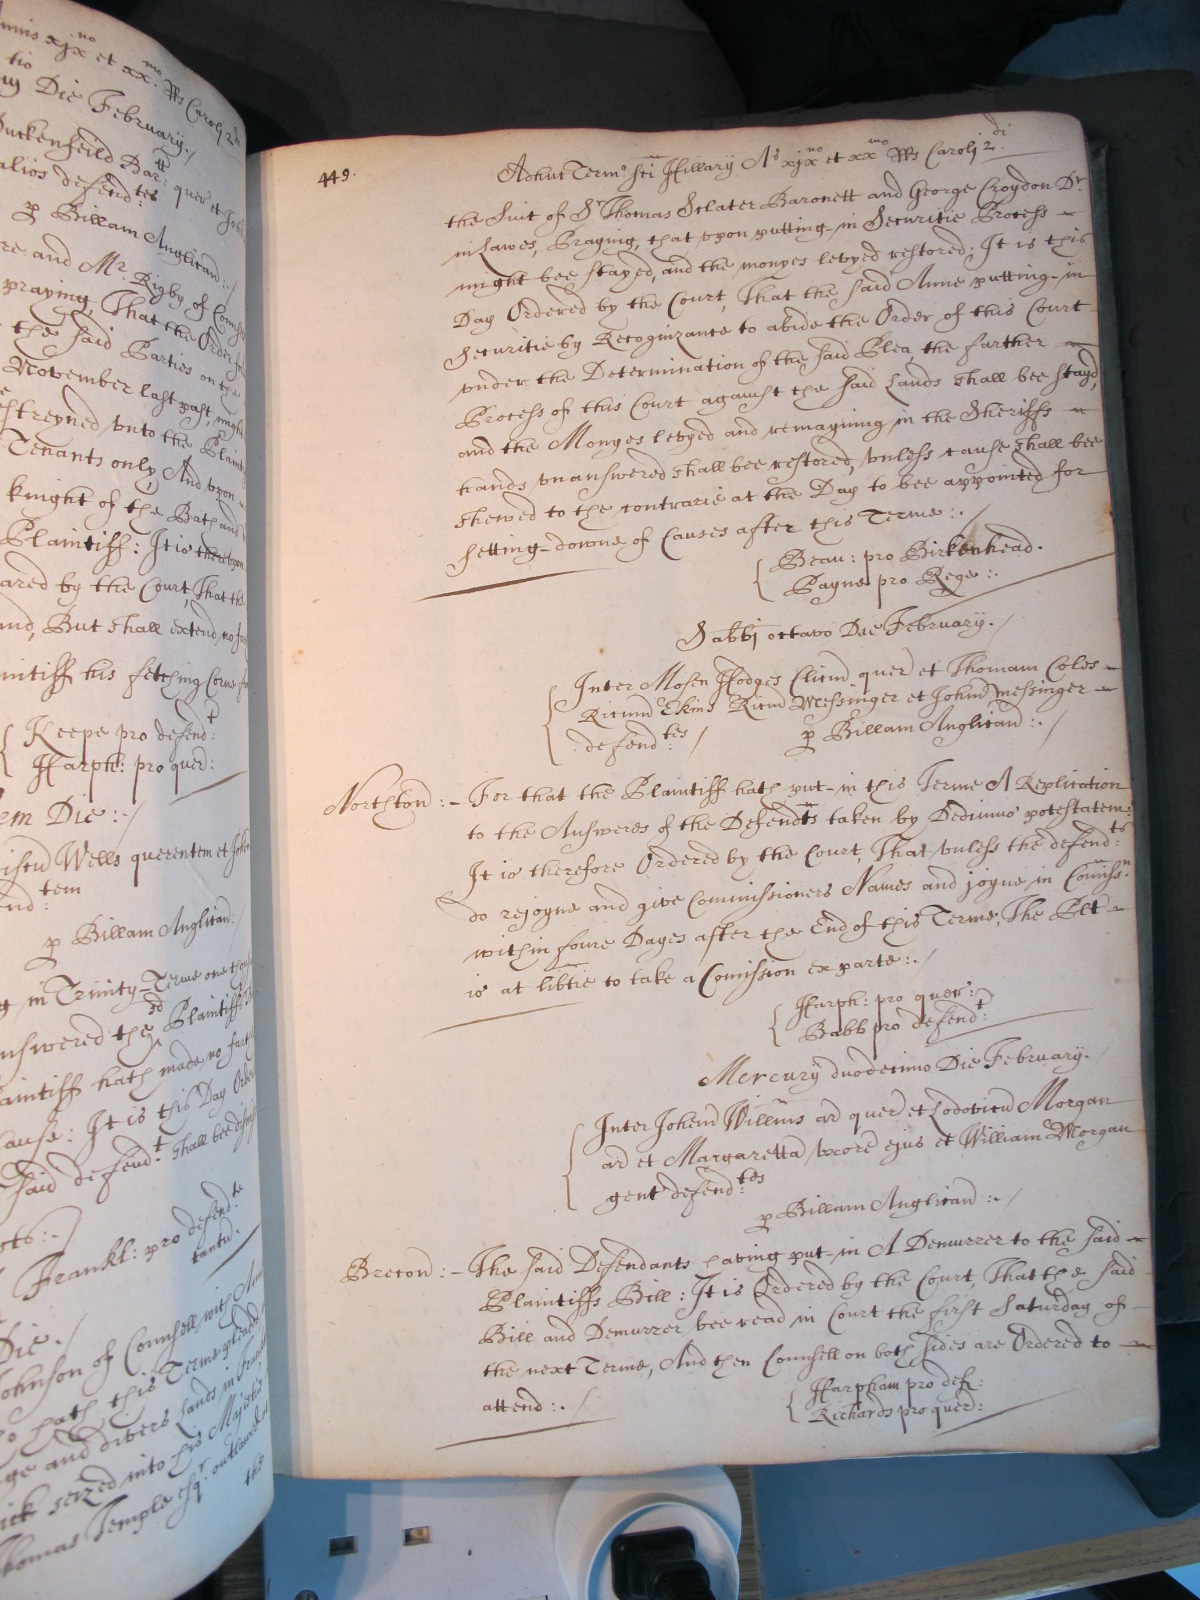 nnis xjx no et xx mo Rs Caroli 2 di
tio
uy Die February./
Duckenfeild Bar tt: quer et Joh
alios defend: tes
p Billam Anglican:./
re and Mr. Rigby of Counse
praying, That the Order
the said Parties on the
November last past, might
streyned unto the Plaint
Tenants only, And upon
knight of the Bath and
Plaintiff: It is thereupon
ared by the Court, That the
and, But shall extend, no fur
intiff his fetching Corne
{ Keepe pro defend: t
Harph: pro quer:
em Die:./
Wells querentem et John
end: tem
p Billam Anglican:
g in Trinity-Terme one thou
nswered the sd Plaintiffs
aintiff hath made, no fart
ause: It is this Day Order
said defend: t shall bee dismis
sts:./
Frankl: pro defend: te
tantu:
Die./
Johnson of Counsell with
o hath this Terme pleade
ge and divers lands in
ick seized into his Majesties
Thomas Temple esqr: outlawed
the
449.
Adhuc Termo. Sci Hillarij Ao xjx no et xx mo Rs Caroli 2 di.
the Suit of Sr Thomas Sclater Baronett and George Croydon Dr.
in Lawes, Praying, that upon putting-in Securitie Process
might bee stayed, and the monyes levyed restored; It is this
Day Ordered by the Court, That the said Anne putting-in
Securitie by Recognizance to abide the Order of this Court
under the Determination of the said Plea, the farther
Process of this Court against the said Lands shall bee stayd,
and the Monyes levyed and remayning in the Sheriffs
hands unanswered shall bee restored, unless cause shall bee
shewed to the contrarie at the Day to bee appointed for
setting-downe of Causes after this Terme:./
{ Beau: pro Birkenhead.
Payne pro Rege:.
Sabbi octavo Die February./
Inter Mosen Hodges Clicum quer et Thomam Coles
Ricum Ekins Ricum Messinger et Johem messinger
defend: tes / p Billam Anglican:./
Northton:- For that the Plaintiff hath put-in this Terme A Replication
to the Answeres of the Defendts taken by Dedimus potestatem:
It is therefore Ordered by the Court, That unless the defend: ts
do rejoyne and give Commissioners Names and joyne in Comiss:n
within foure Dayes after the End of this Terme, The Plt
is at libtie to take a Comission ex parte:./
{ Harph: pro quer:
Babb pro defend: t
Mercurij duodecimo Die February./
{ Inter Johem Willms ar quer et Lodovicu Morgan
ar et Margaretta uxore ejus et William Morgan
gent defend: tes
p Billam Anglican:./
Brecon:- The said Defendants having put-in A Demurrer to the said
Plaintiffs Bill: It is Ordered by the Court, That the said
Bill and Demurrer bee read in Court the first Saturday of
the next Terme, And then Counsell on both sides are Ordered to
attend:./
{ Harpham pro def:
Richards pro quer: